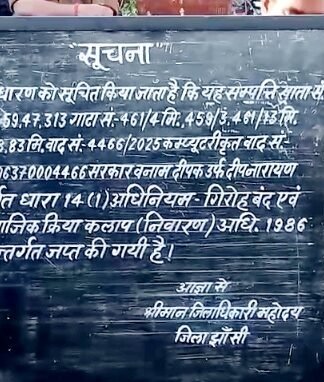 "सूचना"
धारण को सूचित किया जाता है कि यह सम्पत्ति खाता सं
59,47,313 गाटा सं.- 461/4 मि., 459/3, 461/13 मि.
3,83 मि, वाद सं- 4466/2025 कम्प्यूटरीकृत वाद सं.-
06370004466 सरकार वनाम दीपक उर्फ दीपनारायण
र्गत धारा 14 (1) अधिनियम - गिरोह बंद एवं
माजिक क्रिया कलाप (निवारण) अधि. 1986
न्तर्गत जप्त की गयी है।
आज्ञा से
श्रीमान जिलाधिकारी महोदय
जिला झाँसी